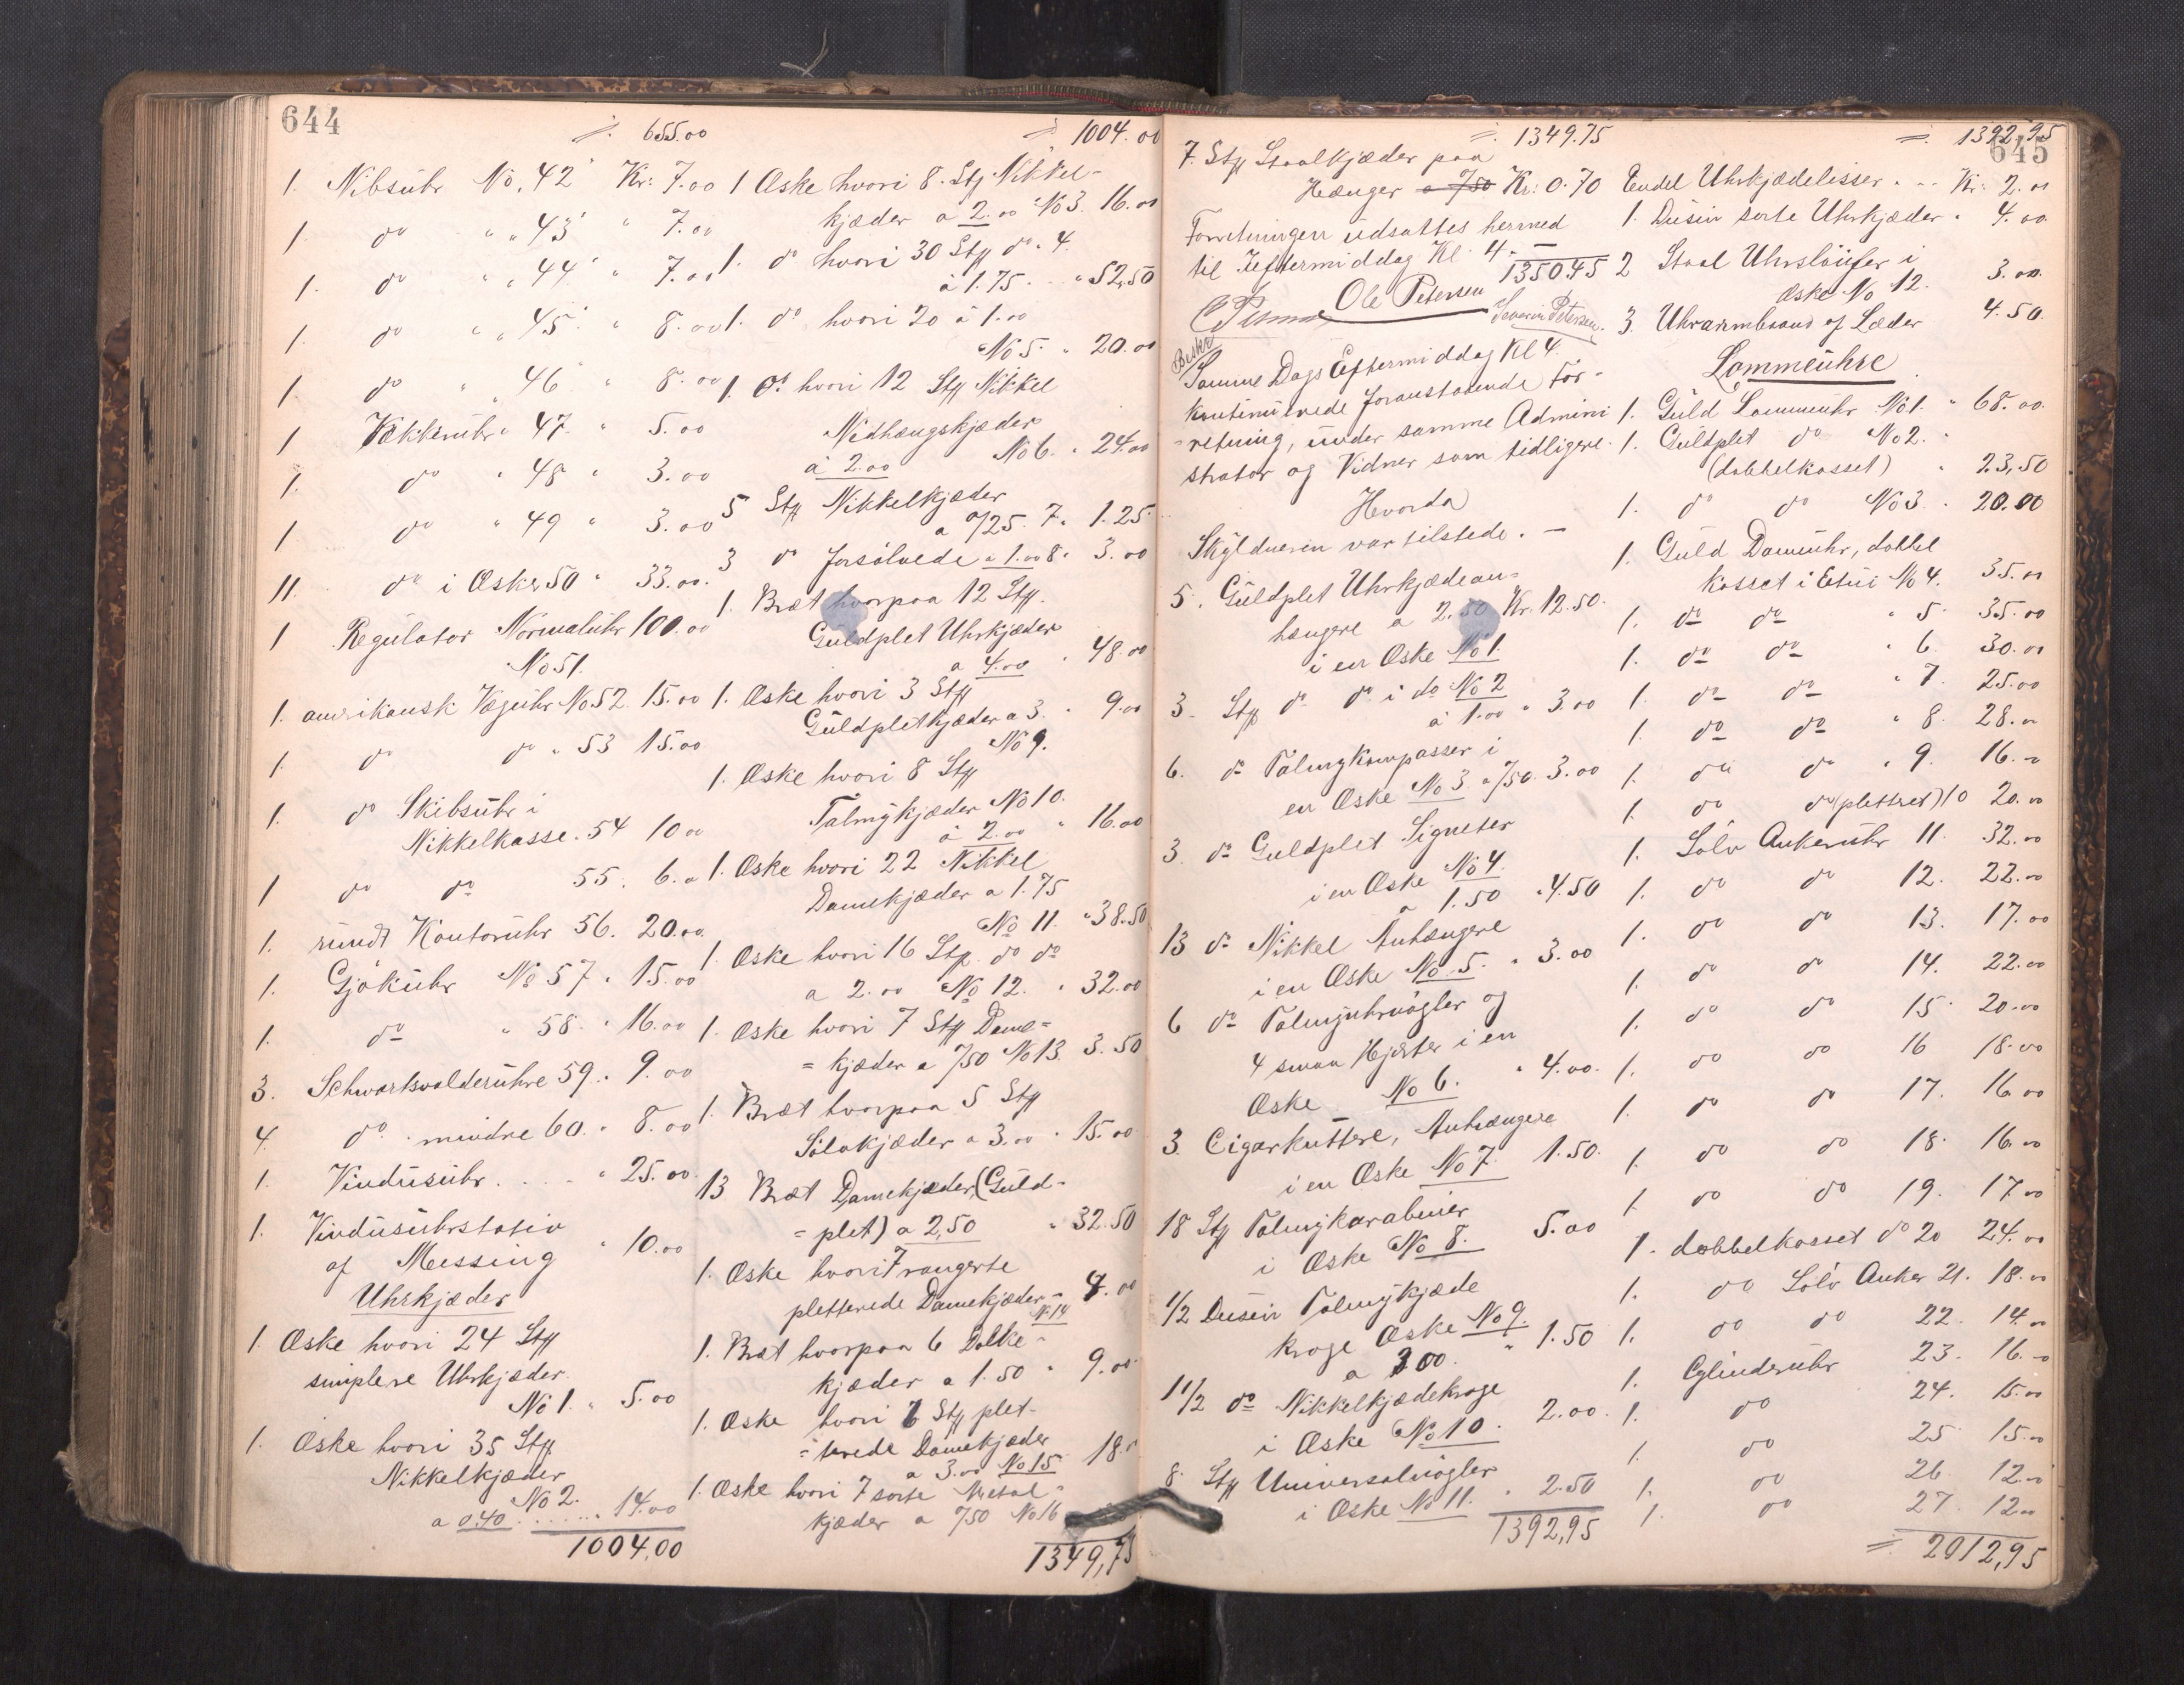 644
655.00
1. Nibsuhr No. 42 Kr: 7.00
1. do " " 43 " 7.00
1. do " " 44 " 7.00
1. do " " 45 " 8.00
1 do " 46 " 8.00
1 Vækkeruhr " 47 " 5.00
1. do " 48 " 3.00
1 do " 49 " 3.00
11. do i Æsker 50 " 33.00.
1 Regulator Normaluhr 100.00
No 51.
1. amrikansk Væguhr No 52. 15.00
1. do do " 53 15.00
1. do Skibsuhr i
Nikkelkasse. 54 10.00
1 do do 55. 6.00
1. rundt Kontoruhr 56. 20.00.
1. Gjökuhr No 57 " 15.00
1. do " 58. " 16.00
3. Schwartsvalderuhre 59. " 9.00
4. do. mindre 60. " 8.00
1. Vinduesuhr . . . . " 25.00.
1. Vinduesuhrstativ
af Messing " 10.00
Uhrkjæder
1. Æske hvori 24 Stk
simplere Uhrkjæder
No 1. " 5.00
1. Æske hvori 35 Stk
Nikkelkjæder
No 2.
a 0.40 . . . . . . 14.00
1004,00
1004.00
1 Æske hvori 8. Stk Nikkel-
kjæder a 2.00 No 3. 16.00
1. do hvori 30 Stk do " 4.
à 1.75. . . " 52,50
1. do hvori 20 à 1.00
No 5. " 20.00
1. do hvori 12 Stk Nikkel
Nedhængskjæder
à 2.00 No 6. " 24.00
5 Stk Nikkelkjæder
a 0/25. 7. 1.25.
3 do forsölvede a 1.00 8. 3.00
1. Bræt hvorpaa 12 Stk.
Guldplet Uhrkjæder
a 4.00 " 48.00
1. Æske hvori 3 Stk
Guldpletkjæder a 3. " 9.00
No 9.
1. Æske hvori 8 Stk
Talmykjæder No 10.
à 2.00 " 16.00
1. Æske hvori 22 Nikkel
Damekjæder a 1.75
No 11. " 38.50
1. Æske hvori 16 Stk. do do
a 2.00 No 12. " 32.00
1. Æske hvori 7 Stk Dame=
= kjæder a /50 No 13. 3.50
1. Bræt hvorpaa 5 Stk
Sölvkjæder a 3.00 " 15.00
13 Bræt Damekjæder (Guld-
= plet) a 2,50 " 32.50
1. Æske hvori 7 rangerte
pletterede Damekjæder = 4.00
No 14
1. Bræt hvorpaa 6 Dolke-
kjæder a 1.50 " 9.00
1. Æske hvori 6 Stk plet-
= terede Damekjæder
a 3.00 No 15 18.0
1. Æske hvori 7 sorte Metal-
kjæder a /50 No 16
1349,75
1349.75
7. Stk Staalkjæder paa
Hænger a /50 Kr: 0.70
Forretningen udsattes hermed
til Eftermiddag Kl. 4. –
1350.45
Ole Petersen
Severin Petersen.
Beskr
Samme Dags Eftermiddag Kl 4.
kontinuerede foranstaaende For-
= retning, under samme Admini
strator og Vidner som tidligere.
Hvorda
Skyldneren var tilstede. –
5. Guldplet Uhrkjædean=
hængere a 2.50 Kr. 12.50.
i en Æske No 1.
3. Stk do do i do No 2
à 1.00 " 3.00
6. do Talmykompasser i
en Æske No 3. a /50. 3.00
3. do Guldplet Signeter
i en Æske No 4.
a 1.50 " 4.50
13 do Nikkel Anhængere
i en Æske No. 5. " 3.00
6 do Talmyuhrnögler og
4 smaa Hjerter i en
Æske No 6. " 4.00.
3. Cigarkuttere, Anhængere
i en Æske No 7. 1.50.
18 Stk Talmykarabiner
i Æske No 8. 5.00
1/2 Dusin Talmykjæde
kroge Æske No 9.
a 3.00. " 1.50
1 1/2 do Nikkelkjædekroge
i Æske No 10. 2.00.
8. Stk Universalnögler
i Æske No 11. " 2.50
1392,95
1392,95
645
Endel Uhrkjædelisser . . . Kr: 2.00
1. Dusin sorte Uhrkjæder " 4.00.
2 Staal Uhrslöifer i
Æske No 12. 3.00.
3. Uhrarmbaand af Læder 4.50.
Lommeuhre
1. Guld Lommeuhr No 1. " 68.00.
1. Guldplet do No 2. "
(dobbelkasset) " 23,50
1. do do No 3. " 20.00
1. Guld Dameuhr, dobbel
kasset i Etui No 4. 35.00
1. do do " 5. 35.00
1. do do " 6. 30.00
1. do do " 7. 25.00
1. do do " 8. 28.00
1. do do " 9. 16.00
1. do do (plettret) 10 20.00
1. Sölv Ankeruhr 11. 32.00
1. do do 12. 22.00
1. do do 13. 17.00
1. do do 14. 22.00
1. do do 15. 20.00
1. do do 16 18.00
1. do do 17. 16.00
1. do do 18. 16.00
1. do do 19. 17.00
1. dobbelkasset do 20 24.00
1. do Sölv Anker 21. 18.00
1. do do 22. 14.00
1. Cylinderuhr 23. 16.00
1. do 24. 15.00
1. do 25 15.00
1. do 26. 12.00
1. do 27. 12.00
2012,95